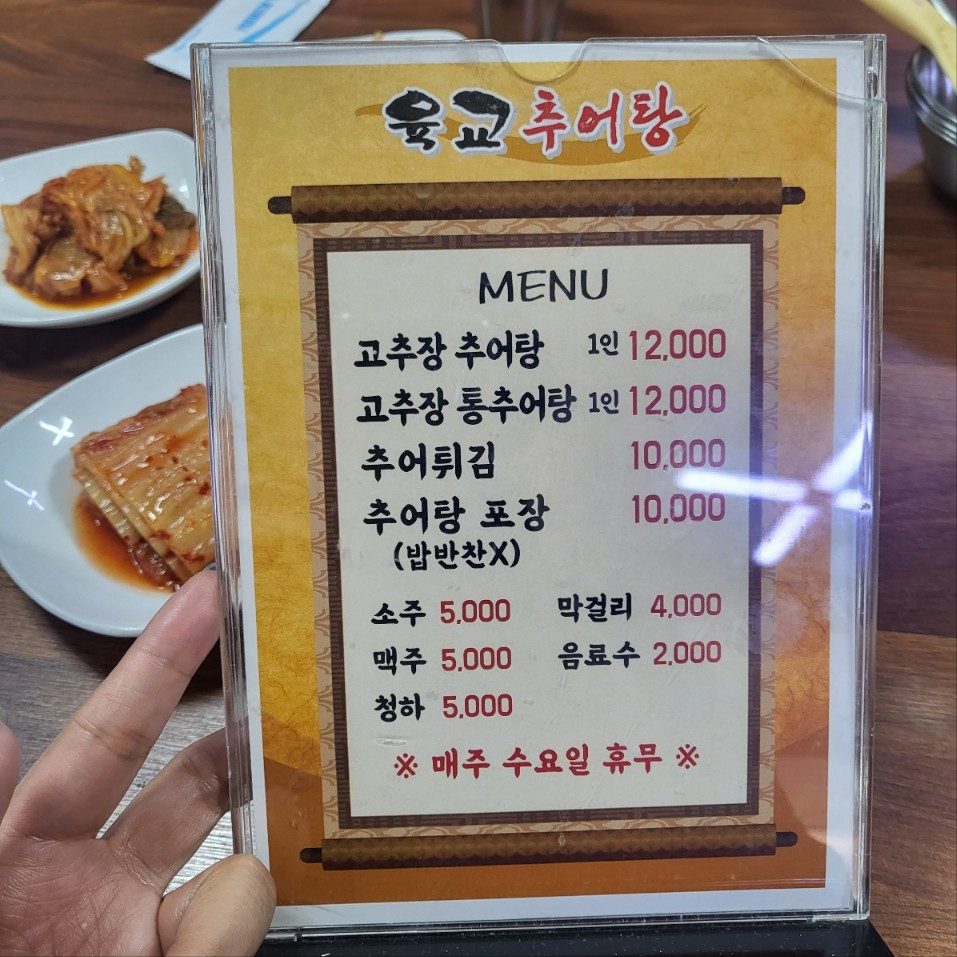 육교 추어탕
MENU
고추장 추어탕 1인 12,000
고추장 통추어탕 1인 12,000
추어튀김 10,000
추어탕 포장 10,000
(밥반찬X)
소주 5,000 막걸리 4,000
맥주 5,000 음료수 2,000
청하 5,000
※ 매주 수요일 휴무 ※